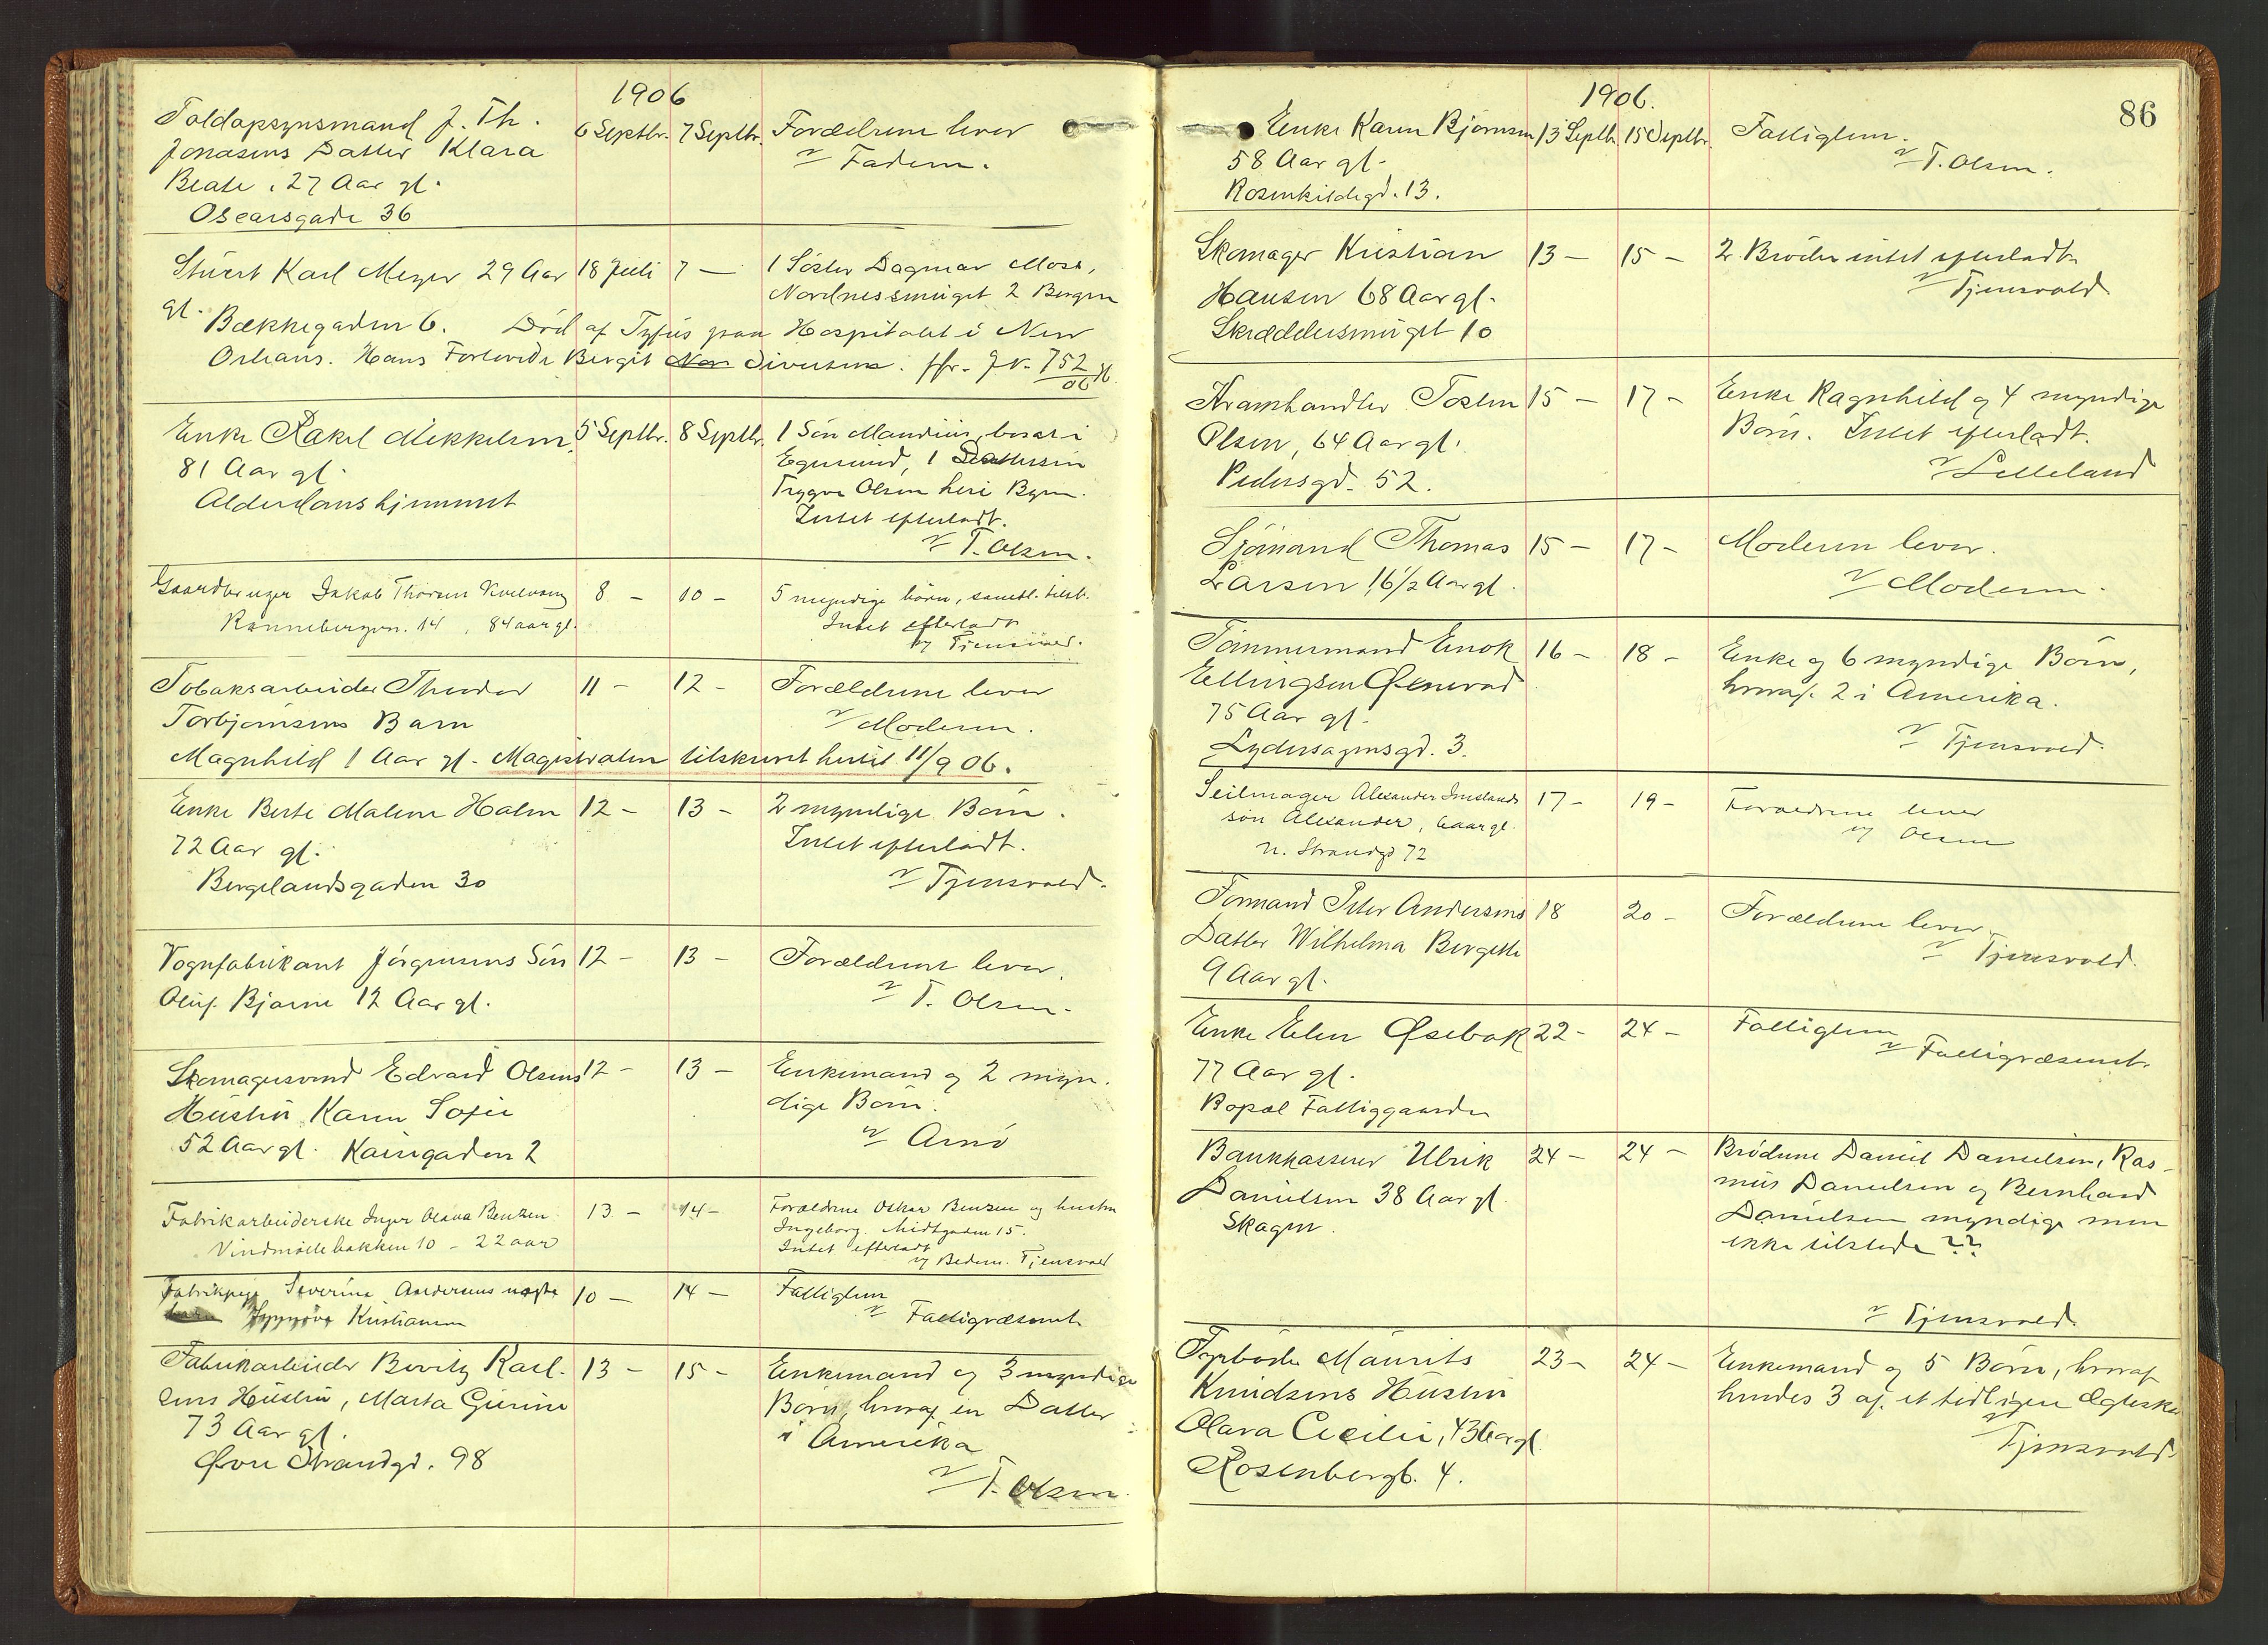 1906
Toldopsynsmand J. Th.
Jonasens Datter Klara
Beate, 27 Aar gl.
Oscarsgade 36
6 Septbr. 7 Septbr.
Forældrene lever
v Faderen.
Stuert Karl Meyer 29 Aar
gl.
18 Juli 7 —
1 Søster Dagmar Mose,
Nordnessmuget 2 Bergen
Bækkegaden 6. Død af Tyfus paa Hospitalet i New
Orleans. Hans Forlovede Bergit Sivertsen. ffr. J N. 752/06
Enke Rakel Mikkelsen
81 Aar gl.
Alderdomshjemmet
5 Septbr. 8 Septbr.
1 Søn Mandius, bosat i
Egersund, 1 Dattersøn
Trygve Olsen heri Byen.
Intet efterladt.
v T. Olsen.
Gaardbruger Jakob Thorsen Kvelvang
Rannebergvn. 14, 84 aar gl.
8 — 10 —
5 myndige børn, samtl. tilst.
Intet efterladt
v Tjensvold.
Tobaksarbeider Theodor
Torbjørnsens Barn
11 — 12 —
Forældrene lever
v Moderen.
Magnhild 1 Aar gl. Magistraten tilskrevet hertil 11/9 06.
Enke Berte Malene Holm
72 Aar gl.
Bergelandsgaden 30
12 — 13 —
2 myndige Børn.
Intet efterladt.
v Tjensvold.
Vognfabrikant Jørgensens Søn
Oluf Bjarne 12 Aar gl.
12 — 13 —
Forældrene lever.
v T. Olsen.
Skomagersvend Edvard Olsens
Hustru Karen Sofie
52 Aar gl. Kaisigaden 2
12 — 13 —
Enkemand og 2 myn-
dige Børn.
v Arnø
Fabrikarbeiderske Inger Olava Bentzen
Vindmøllebakken 10 – 22 aar
13 — 14 —
Forældrene Oskar Bentzen og hustru
Ingeborg. Midtgaden 15.
Intet efterladt
v Bedem. Tjensvold
Fabrikpige Severine Andersens uægte
Kristiansen
10 — 14 —
Fattiglem
v Fattigvæsenet
Fabrikarbeider Berentz Karl-
sens Hustru, Marta Gurine
73 Aar gl.
Øvre Strandgd. 98
13 — 15 —
Enkemand og 3 myndige
Børn, hvoraf en Datter
i Amerika
v T. Olsen
86
1906.
Enke Karen Bjørnsen
58 Aar gl.
Rosenkildegd. 13.
13 Septbr. 15 Septbr.
Fattiglem.
v T. Olsen.
Skomager Kristian
Hansen 68 Aar gl.
Skræddersmuget 10
13 — 15 —
2 Brødre intet efterladt
v Tjensvold
Kramhandler Tosten
Olsen, 64 Aar gl.
Pedersgd. 52.
15 — 17 —
Enke Ragnhild og 4 myndige
Børn. Intet efterladt.
v Lilleland
Sjømand Thomas
Larsen 16 1/2 Aar gl.
15 — 17 —
Moderen lever.
v Moderen.
Tømmermand Enok
Ellingsen Østervod
75 Aar gl.
Lydersagensgd. 3.
16 — 18 —
Enke og 6 myndige Børn,
hvoraf 2 i Amerika.
v Tjensvold.
Seilmager Alexander Imslands
søn Alexander, 6 aar gl.
n. Strandgd 72
17 — 19 —
Forældrene lever
v Olsen
Formand Peter Andersens
Datter Wilhelma Bergitte
9 Aar gl.
18 20 —
Forældrene lever
v Tjensvold.
Enke Elen Øsebak
77 Aar gl.
Bopæl Fattiggaarden
22 — 24 —
Fattiglem
v Fattigvæsenet.
Bankkasserer Ulrik
Danielsen 38 Aar gl.
Skagen.
24 — 24 —
Brødrene Daniel Danielsen, Ras-
mus Danielsen og Bernhard
Danielsen myndige men
ikke tilstede??
v Tjensvold
Fyrbøder Maurits
Knudsens Hustru
Olava Cecilie, 43 Aar gl
Rosenbergb. 4.
23 — 24 —
Enkemand og 5 Børn, hvoraf
hendes 3 af et tidligere Ægteska
v
Tjensvold.